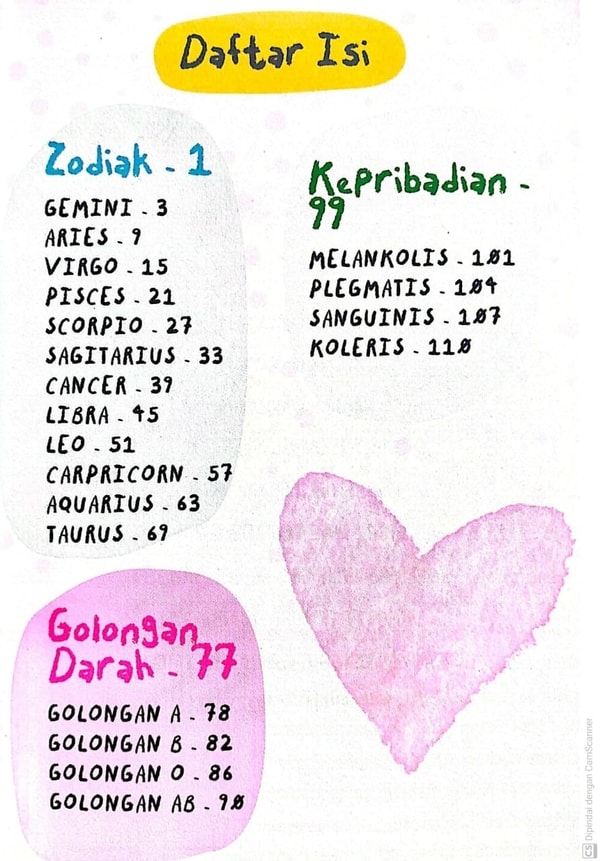 Daftar Isi
Zodiak - 1
GEMINI - 3
ARIES - 9
VIRGO - 15
PISCES - 21
SCORPIO - 27
SAGITARIUS - 33
CANCER - 39
LIBRA - 45
LEO - 51
CARPRICORN - 57
AQUARIUS - 63
TAURUS - 69
Golongan
Darah - 77
GOLONGAN A - 78
GOLONGAN B - 82
GOLONGAN O - 86
GOLONGAN AB - 90
Kepribadian -
99
MELANKOLIS - 101
PLEGMATIS - 104
SANGUINIS - 107
KOLERIS - 110
CS Dipindai dengan CamScanner